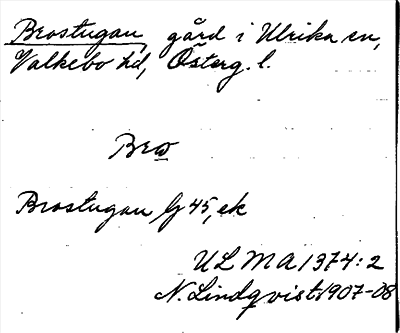 Brostugan, gård i Ulrika sn,
Valkebo hd, Österg. l.
Bro
Brostugan Gg 45, ek
ULMA 1374:2
N. Lindqvist 1907-08